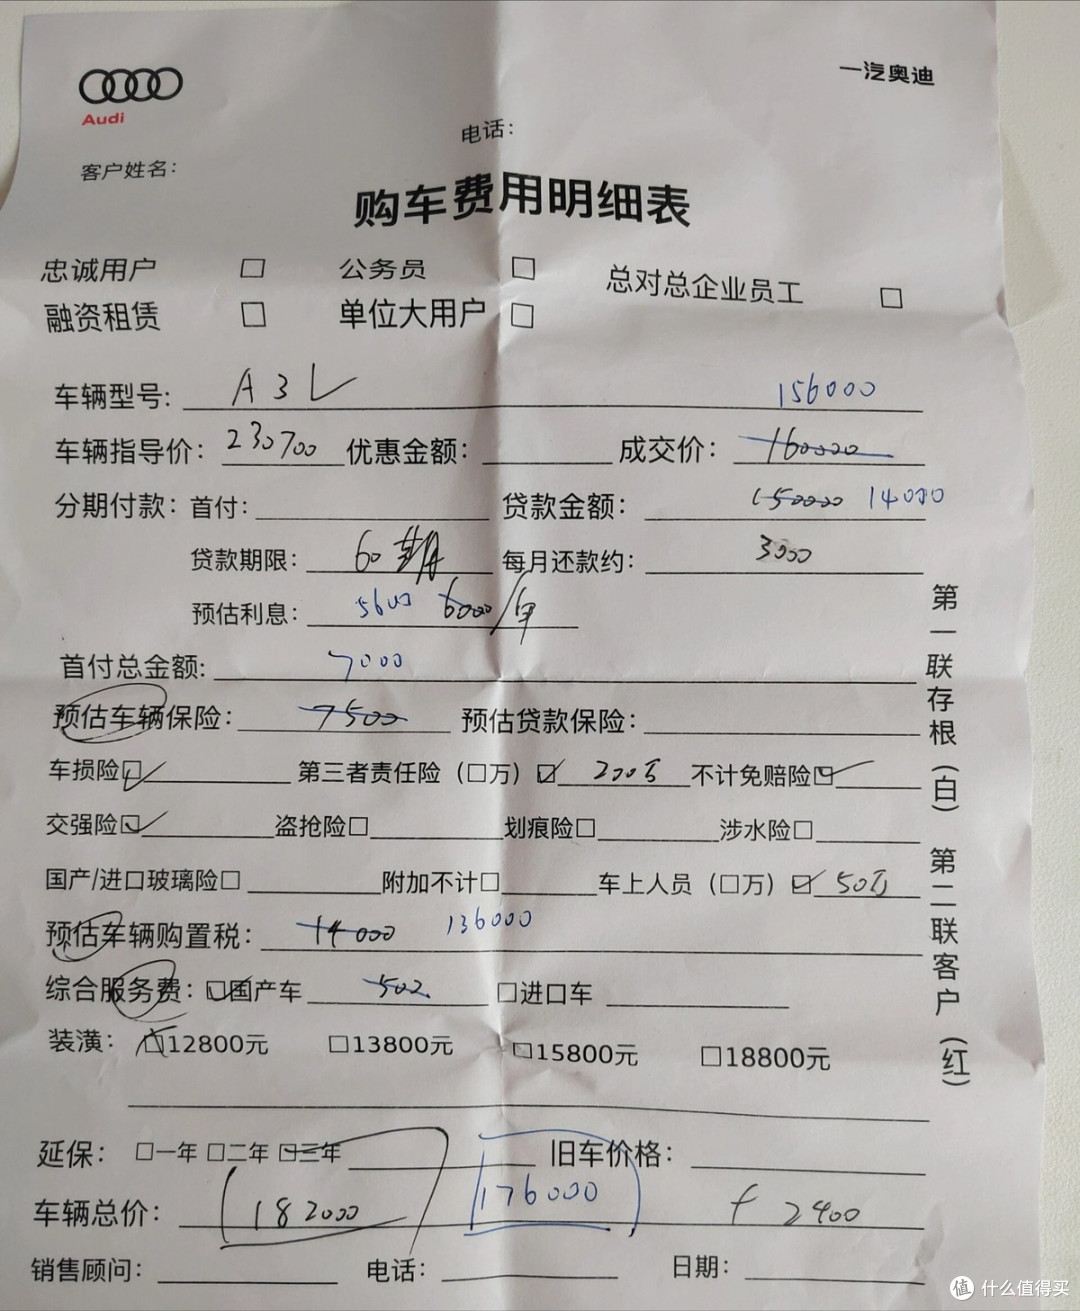 Audi
一汽奥迪
电话：
客户姓名：
购车费用明细表
忠诚用户 □ 公务员 □ 总对总企业员工 □
融资租赁 □ 单位大用户 □
156000
车辆型号: A3L
车辆指导价: 230700 优惠金额: 成交价: 160000
分期付款: 首付: 贷款金额: 150000 14000
贷款期限: 60期 每月还款约: 3000
预估利息: 5600 6000/年
首付总金额: 7000
预估车辆保险: 7500 预估贷款保险:
车损险☑ 第三者责任险（□万）☑ 200万 不计免赔险☑
交强险☑ 盗抢险□ 划痕险□ 涉水险□
国产/进口玻璃险□ 附加不计□ 车上人员（□万）☑ 50万
预估车辆购置税: 14000 136000
综合服务费: ☑国产车 502 □进口车
装潢: ☑12800元 □13800元 □15800元 □18800元
延保: □一年 □二年 □三年 旧车价格:
车辆总价: 182000 176000 +2400
销售顾问: 电话: 日期:
第一联存根（白） 第二联客户（红）
值 什么值得买